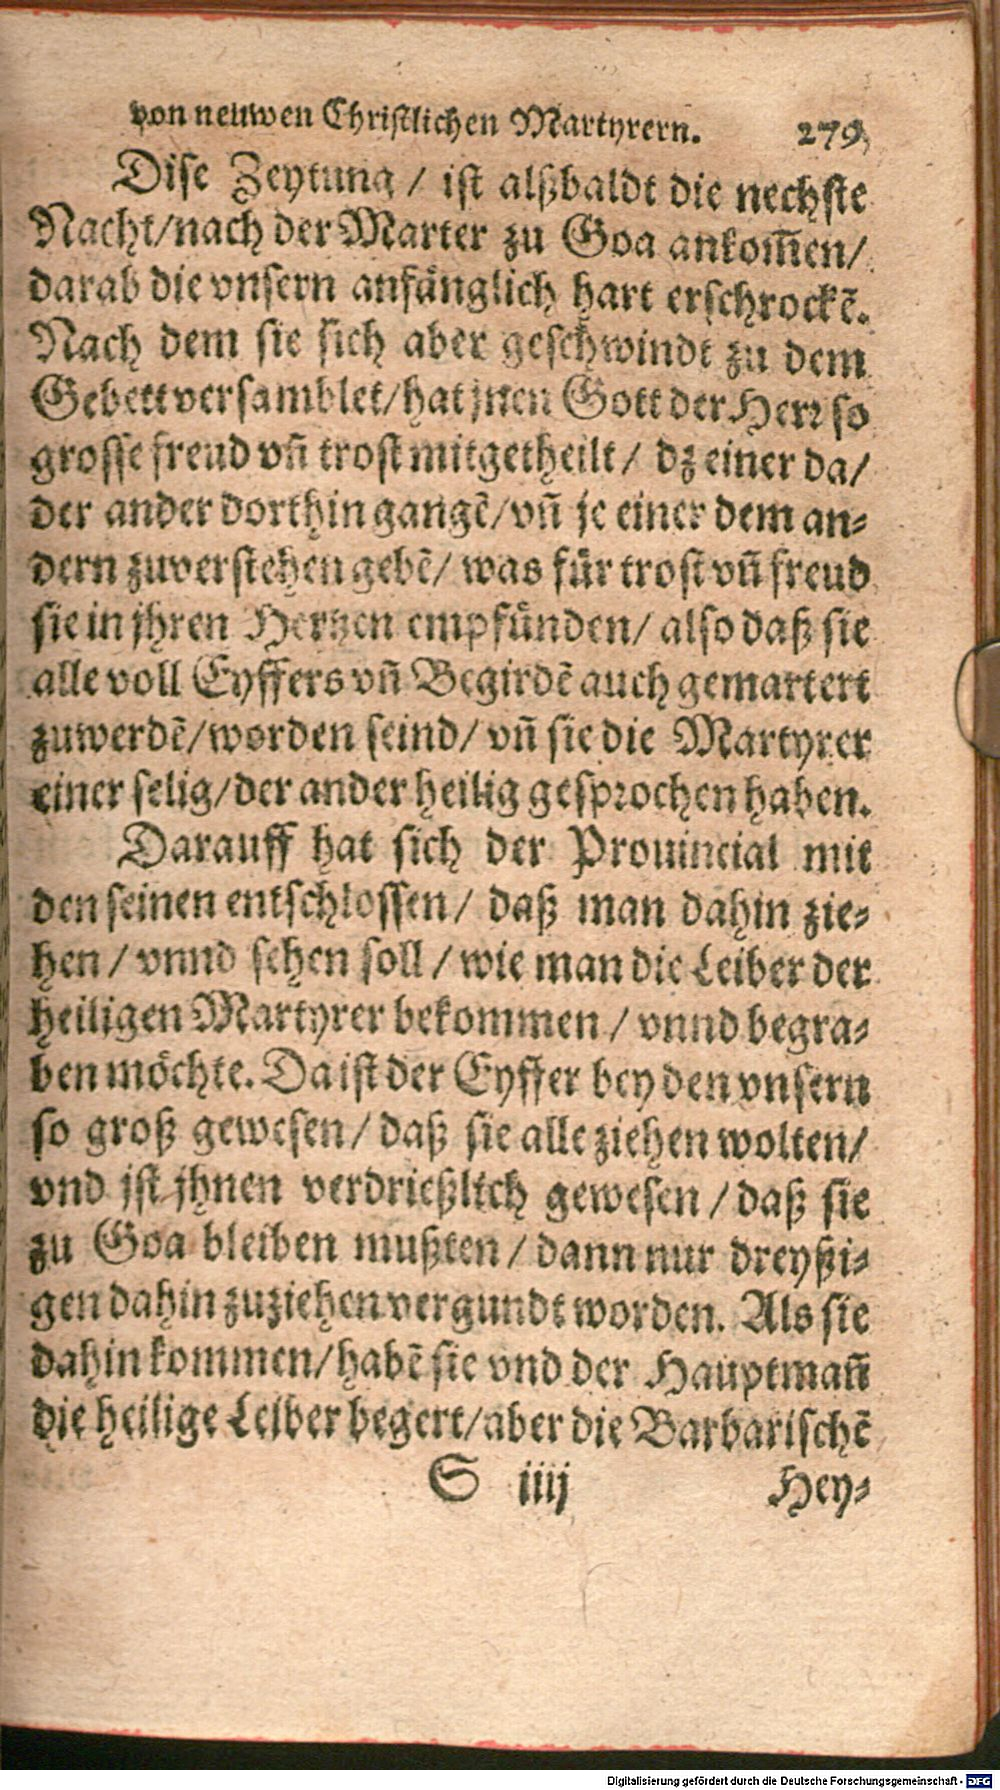 von neuwen Christlichen Martyrern. 279
Dise Zeytung / ist alßbaldt die nechste
Nacht/nach der Marter zu Goa ankom̄en/
darab die vnsern anfänglich hart erschrockẽ.
Nach dem sie sich aber geschwindt zu dem
Gebett versamblet/hat jnen Gott der Herr so
grosse freud vñ trost mitgetheilt / dz einer da/
der ander dorthin gangẽ/vñ je einer dem an-
dern zuverstehen gebẽ/ was für trost vñ freud
sie in jhren Hertzen empfünden/ also daß sie
alle voll Eyffers vñ Begirdẽ auch gemartert
zuwerdẽ/worden seind/ vñ sie die Martyrer
einer selig/der ander heilig gesprochen haben.
Darauff hat sich der Prouincial mit
den seinen entschlossen/ daß man dahin zie-
hen / vnnd sehen soll / wie man die Leiber der
heiligen Martyrer bekommen / vnnd begra-
ben möchte. Da ist der Eyffer bey den vnsern
so groß gewesen/ daß sie alle ziehen wolten/
vnd ist jhnen verdrießlich gewesen / daß sie
zu Goa bleiben mußten / dann nur dreyßi-
gen dahin zuziehen vergundt worden. Als sie
dahin kommen/habẽ sie vnd der Hauptmañ
die heilige Leiber begert/aber die Barbarischẽ
S iiij Hey-
Digitalisierung gefördert durch die Deutsche Forschungsgemeinschaft - DFG